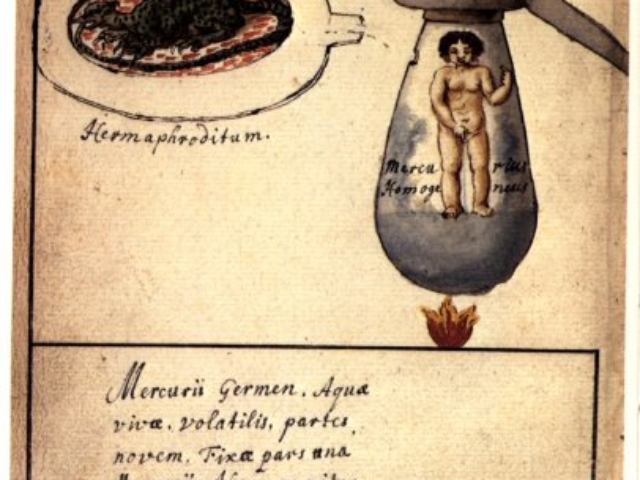 Hermaphroditum.
Mercu rius
Homoge neus
Mercurii Germen. Aquæ
vivæ. volatilis, partes
novem. Fixæ pars una